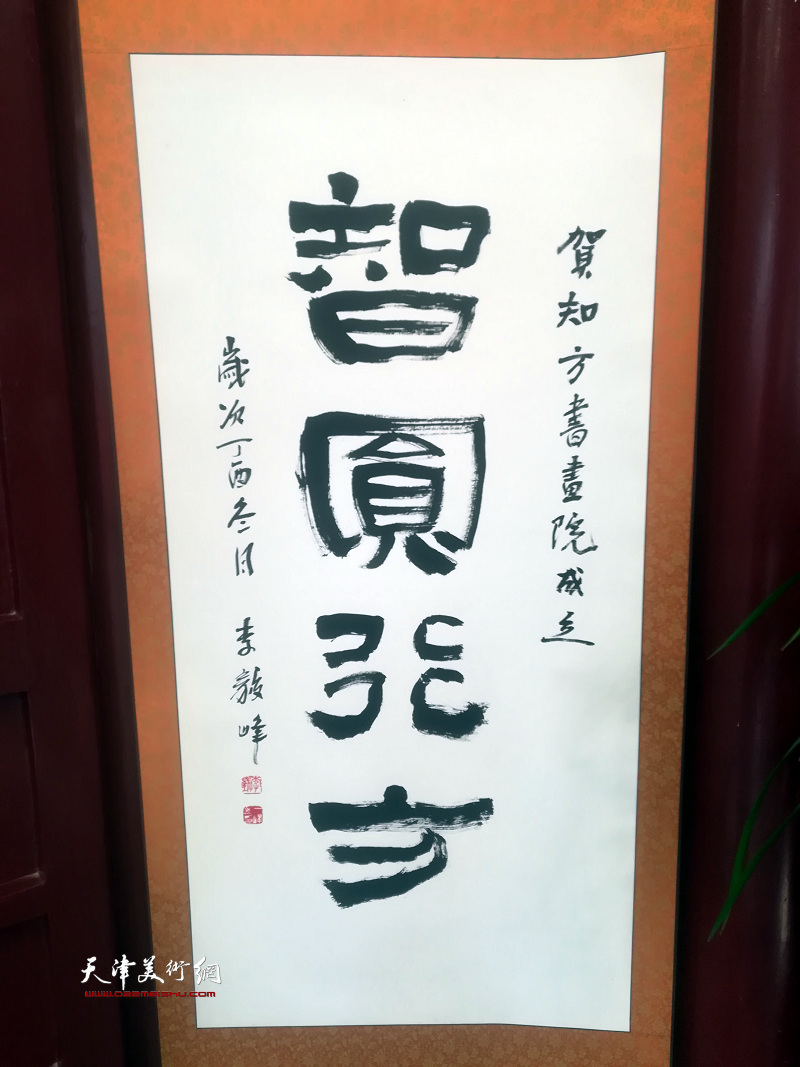 賀知方書畫院成立
智圓行方
歲次丁酉冬月 李毅峰
天津美術網
www.022meishu.com